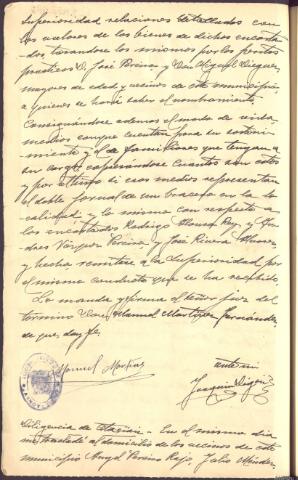 Superioridad relaciones detallados con
los valores de los bienes de dichos encarta
dos tasandose los mismos por los peritos
practicos D. José Pereira y Don Miguel
mayores de edad y vecinos de este municipio
a quienes se hará saber el nombramiento.
Consignándose ademas el modo de vida,
medios conque cuentan para su sosteni-
miento y el de familiares que tengan a
su cargo expresandose cuantos son estos
y por ultimo si esos medios representan
el doble jornal de un bracero en la lo
calidad; y lo mismo con respecto a
los encartados Rodrigo Alonso Rey y An
dres Vazquez Pereira y José Rivera
y hecho remitase a la Superioridad por
el mismo conducto que se ha recibido.
Lo manda y firma el señor juez del
termino Don Manuel Martinez Fernández
de que, doy fe.
Manuel Martinez
ante mi
Joaquin
Diligencia de citación - En el mismo dia
me trasladé al domicilio de los vecinos de este
municipio Angel Pereira Rejo, Julio Méndez,